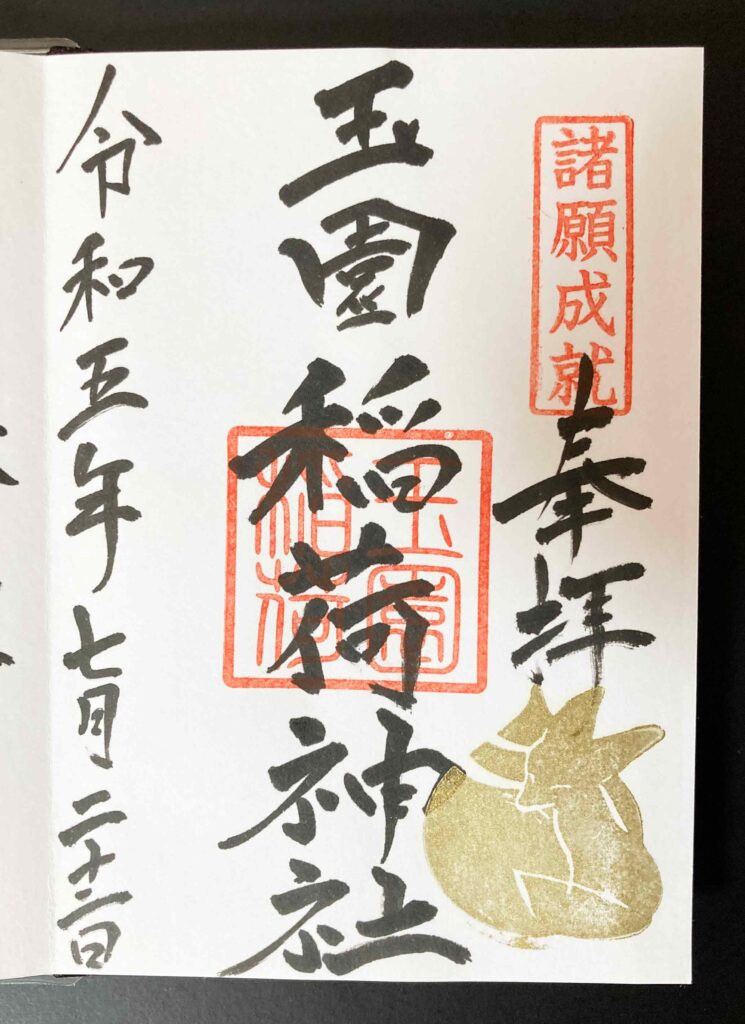 諸願成就
奉拝
玉園稲荷神社
玉園
稲荷
令和五年七月二十二日